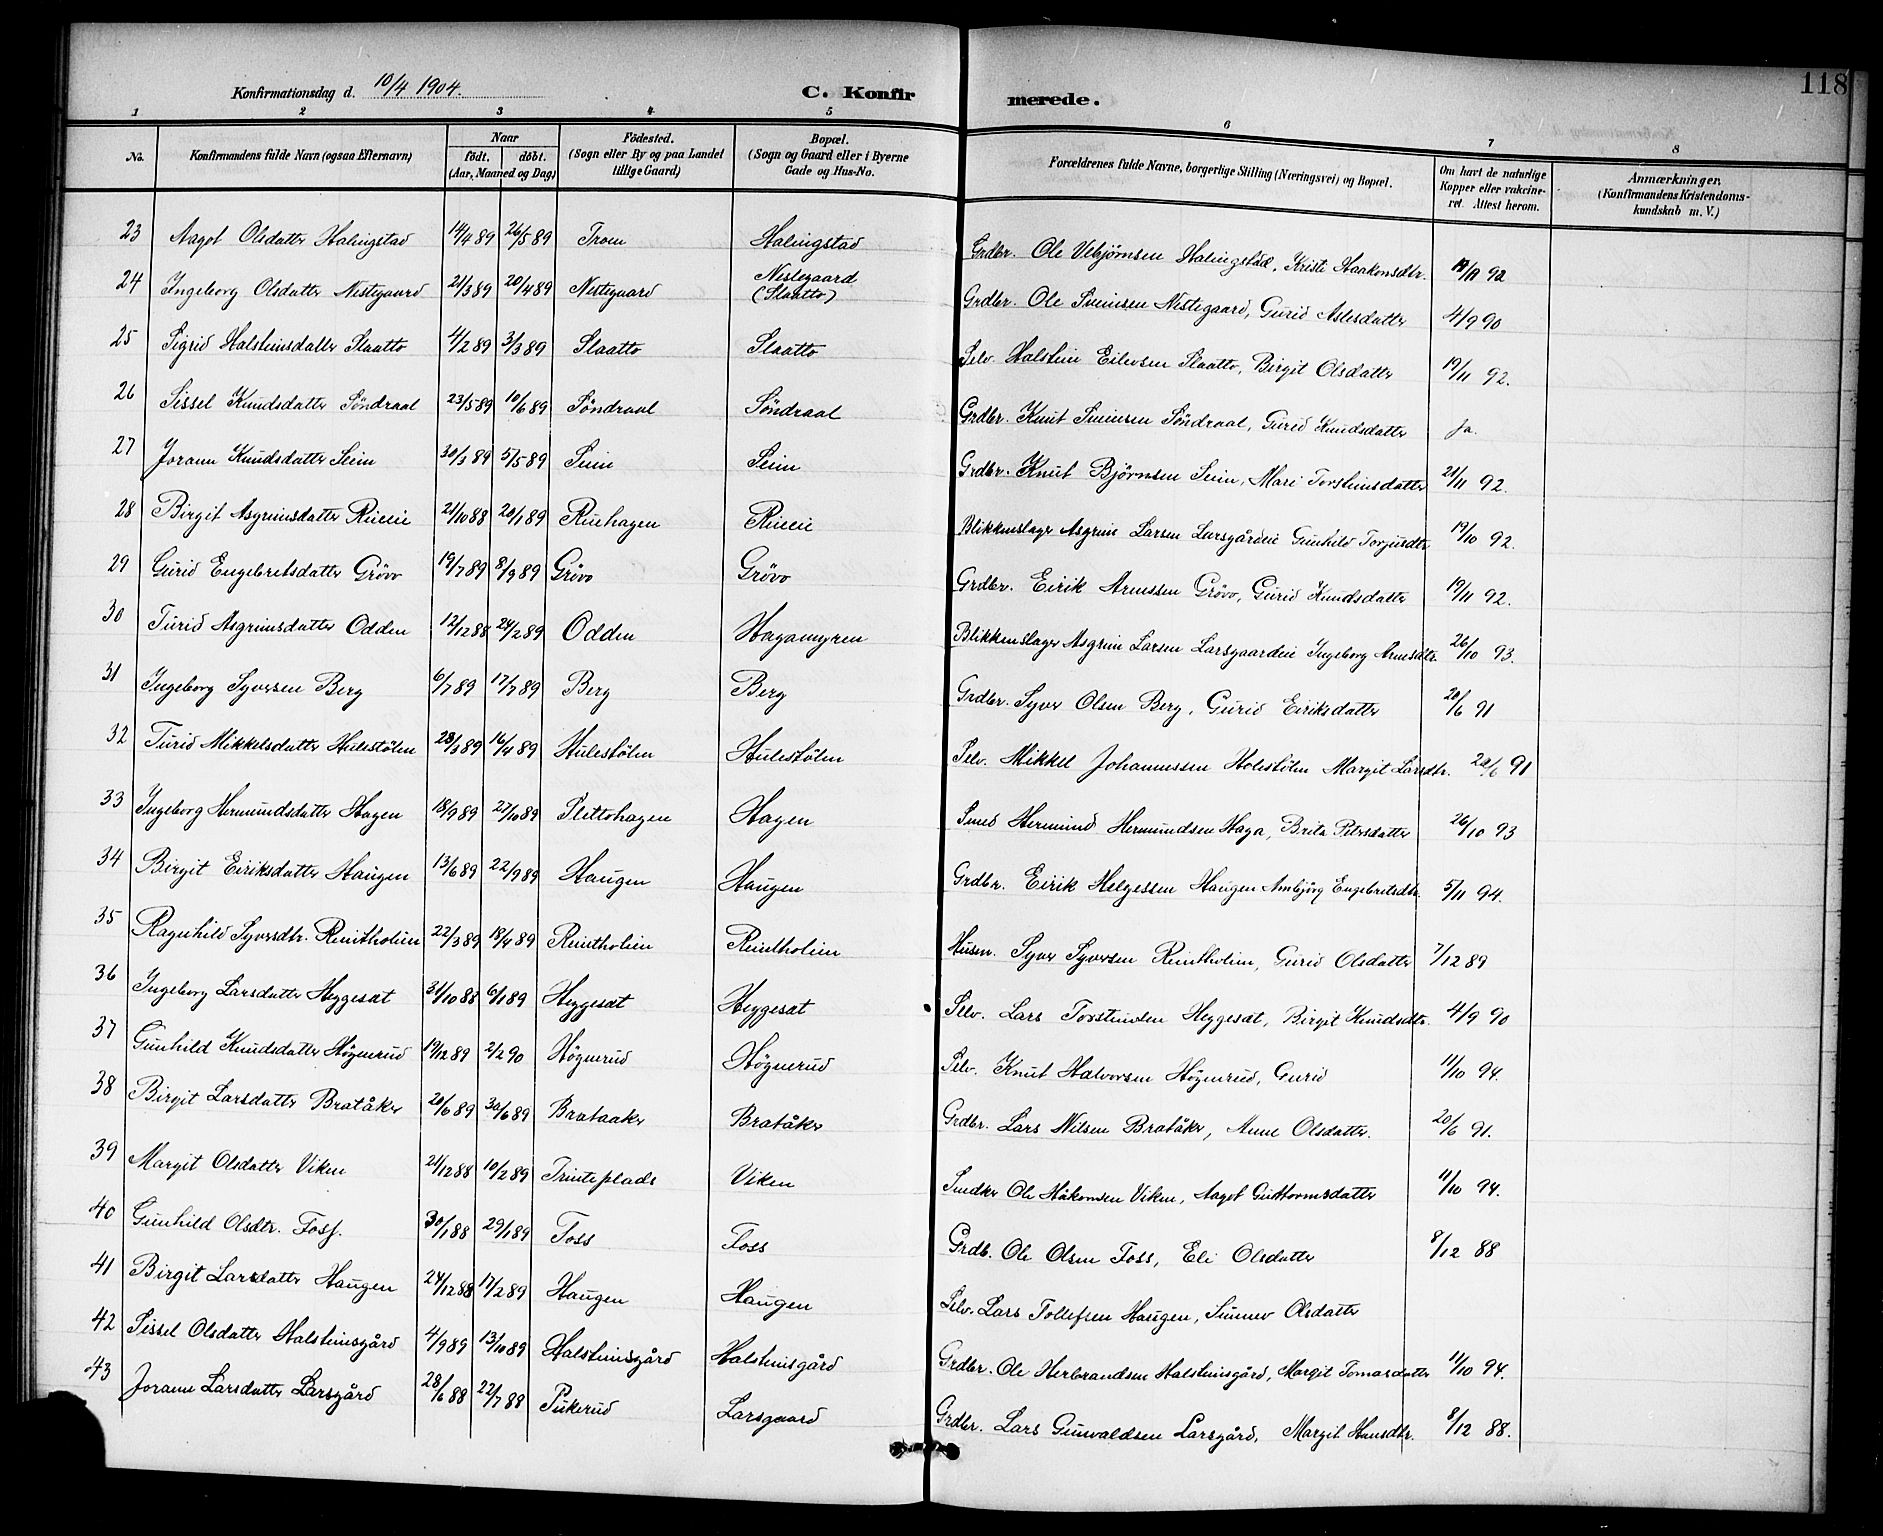 118
Konfirmationsdag d. 10/4 1904. C. Konfirmerede.
1 2 3 4 5 6 7 8
No. Konfirmandens fulde Navn (ogsaa Efternavn) Naar født. døbt. (Aar, Maaned og Dag) Fødested. (Sogn eller By og paa Landet tillige Gaard) Bopæl. (Sogn og Gaard eller i Byerne Gade og Hus-No. Forældrenes fulde Navne, borgerlige Stilling (Næringsvei) og Bopæl. Om havt de naturlige Kopper eller vakcineret. Attest herom. Anmærkninger. (Konfirmandens Kristendomskundskab m. V.)
23 Aagot Olsdatter Halingstad 14/4 89 26/5 89 Troen Halingstad Grdbr. Ole Vebjørnsen Halingstad, Kristi Haakonsdtr. 92
24 Ingeborg Olsdatter Nestegaard 21/3 89 20/4 89 Nestegaard Nestegaard (Slaatto) Grdbr. Ole Sveinsen Nestegaard, Gurid Aslesdatter 4/9 90
25 Sigrid Halsteinsdatter Slaatto 4/2 89 3/3 89 Slaatto Slaatto Selv. Halstein Eilevsen Slaatto, Birgit Olsdatter 19/11 92.
26 Sissel Knudsdatter Söndraal 23/5 89 10/6 89 Söndraal Söndraal Grdbr. Knut Sveinsen Söndraal, Gurid Knudsdatter Ja.
27 Jorann Knudsdatter Seim 30/3 89 5/5 89 Seim Seim Grdbr. Knut Bjørnsen Seim, Mari Torsteinsdatter 21/11 92.
28 Birgit Asgrimsdatter Rueeie 21/10 88 20/1 89 Ruehagen Rueeie Blikkenslager Asgrim Larsen Larsgårdeie Gunhild Torjusdtr 19/10 92.
29 Gurid Engebretsdatter Grövo 19/7 89 8/9 89 Grövo Grövo Grdbr. Eirik Arnessen Grövo, Gurid Knudsdatter 19/11 92.
30 Turid Asgrimsdatter Odden 12/12 88 24/2 89 Odden Hagamyren Blikkenslager Asgrim Larsen Larsgaardeie Ingeborg Arnesdtr. 26/10 93.
31 Ingeborg Syversen Berg 6/7 89 17/7 89 Berg Berg Grdbr. Syver Olsen Berg, Gurid Eiriksdatter 20/6 91
32 Turid Mikkelsdatter Hulestølen 23/3 89 16/4 89 Hulestölen Hulestölen Selv. Mikkel Johannessen Holestölen Margit Larsdtr. 20/6 91
33 Ingeborg Hermundsdatter Hagen 18/9 89 27/10 89 Slettohagen Hagen Smed Hermund Hermundsen Haga, Brita Petersdatter 26/10 93
34 Birgit Eiriksdatter Haugen 13/6 89 22/9 89 Haugen Haugen Grdbr. Eirik Helgessen Haugen Ambjörg Engebretsdtr. 5/11 94.
35 Ragnhild Syversdtr. Reintholim 22/3 89 18/4 89 Reintholim Reintholim Husm. Syver Syversen Reintholim, Gurid Olsdatter 7/12 89
36 Ingeborg Larsdatter Heggesæt 31/10 88 6/1 89 Heggesæt Heggesæt Selv. Lars Torsteinsen Heggesæt, Birgit Knudsdtr. 4/9 90
37 Gunhild Knudsdatter Högnerud 19/12 89 2/2 90 Högnerud Högnerud Selv. Knut Halvorsen Högnerud, Gurid 11/10 94.
38 Birgit Larsdatter Bratåker 20/6 89 30/6 89 Brataaker Bratåker Grdbr. Lars Nilsen Bratåker, Anne Olsdatter. 20/6 91.
39 Margit Olsdatter Viken 21/12 88 10/2 89 Trinteplads Viken Snedker Ole Håkonsen Viken, Aagot Guttormsdatter 11/10 94.
40 Gunhild Olsdtr. Foss. 30/1 88 29/1 89 Foss Foss Grdb. Ole Olsen Foss, Eli Olsdatter 8/12 88
41 Birgit Larsdatter Haugen 24/12 88 17/2 89 Haugen Haugen Selv. Lars Tollefsen Haugen, Sunnev Olsdatter
42 Sissel Olsdatter Halsteinsgård 4/9 89 13/10 89 Halsteinsgård Halsteinsgård Grdbr. Ole Herbrandsen Halsteinsgård, Margit Tomasdatter 11/10 94.
43 Jorann Larsdatter Larsgård 28/6 88 22/7 88 Pukerud Larsgaard Grdbr. Lars Gunvaldsen Larsgård, Margit Hansdtr. 8/12 88.